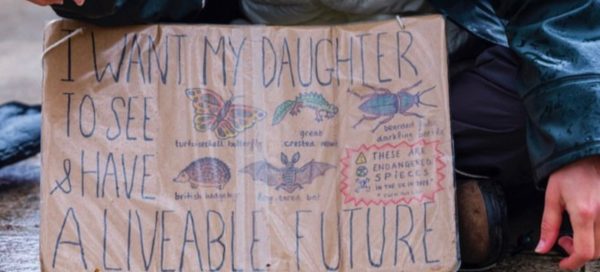 I WANT MY DAUGHTER
TO SEE
& HAVE
A LIVEABLE FUTURE
tortoiseshell butterfly
great
crested newt
bearded
darkling beetle
british
bat
THESE ARE
ENDANGERED
SPIECES
IN THE UK IN